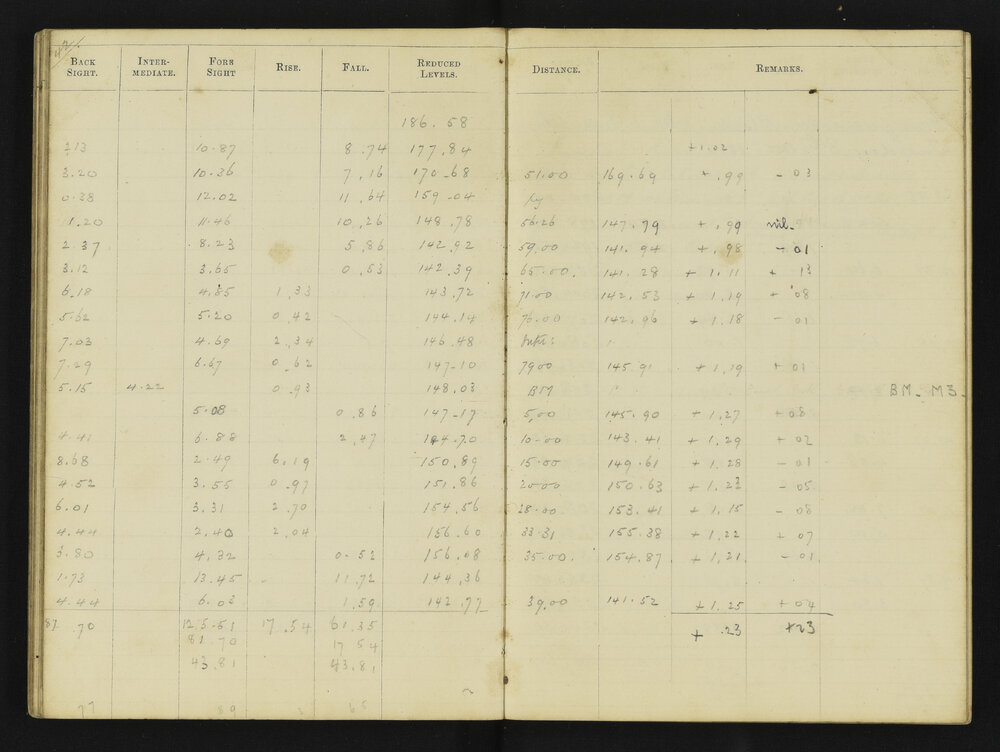 42
BACK SIGHT. INTER-MEDIATE. FORE SIGHT RISE. FALL. REDUCED LEVELS. DISTANCE. REMARKS.
186.58
2.13 10.87 8.74 177.84 +1.02
3.20 10.36 7.16 170.68 51.00 169.69 +.99 -03
0.38 12.02 11.64 159.04
1.20 11.46 10.26 148.78 56.26 147.79 +.99 nil.
2.37 8.23 5.86 142.92 59.00 141.94 +.98 -01
3.12 3.65 0.53 142.39 65.00. 141.28 +1.11 +13
6.18 4.85 1.33 143.72 71.00 142.53 +1.19 +08
5.62 5.20 0.42 144.14 76.00 142.96 +1.18 -01
7.03 4.69 2.34 146.48
7.29 6.67 0.62 147-10 79.00 145.91 +1.19 +01
5.15 4.22 0.93 148.03 BM BM. M3.
5.08 0.86 147-17 5.00 145.90 +1.27 +08
4.41 6.88 2.47 144.70 10-00 143.41 +1.29 +02
8.68 2.49 6.19 150.89 15.00 149.61 +1.28 -01
4.52 3.55 0.97 151.86 20.00 150.63 +1.23 -05
6.01 3.31 2.70 154.56 28.00 153.41 +1.15 -08
4.44 2.40 2.04 156.60 33.31 155.38 +1.22 +07
3.80 4.32 0-52 156.08 35.00. 154.87 +1.21 -01
1.73 13.45 11.72 144.36
4.44 6.03 1.59 142.77 39.00 141.52 +1.25 +04
81.70 125.51 17.54 61.35 +.23 +23
81.70 17 54
43.81 43.81